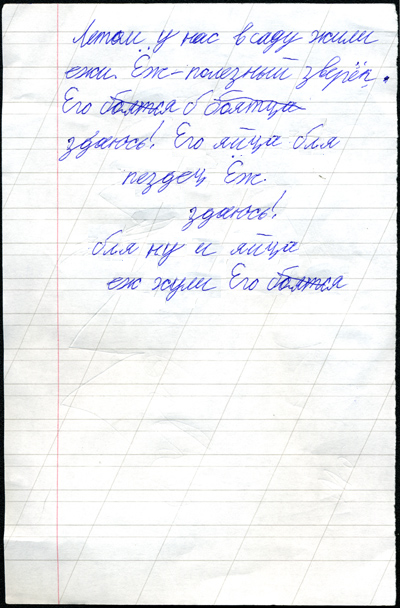 Летом у нас в саду жили
ежи. Ёж - полезный зверёк.
Его боятся б боятца
здаюсь! Его яйца бля
пездец Ёж.
здаюсь!
бля ну и яйца
еж жули Его боятся